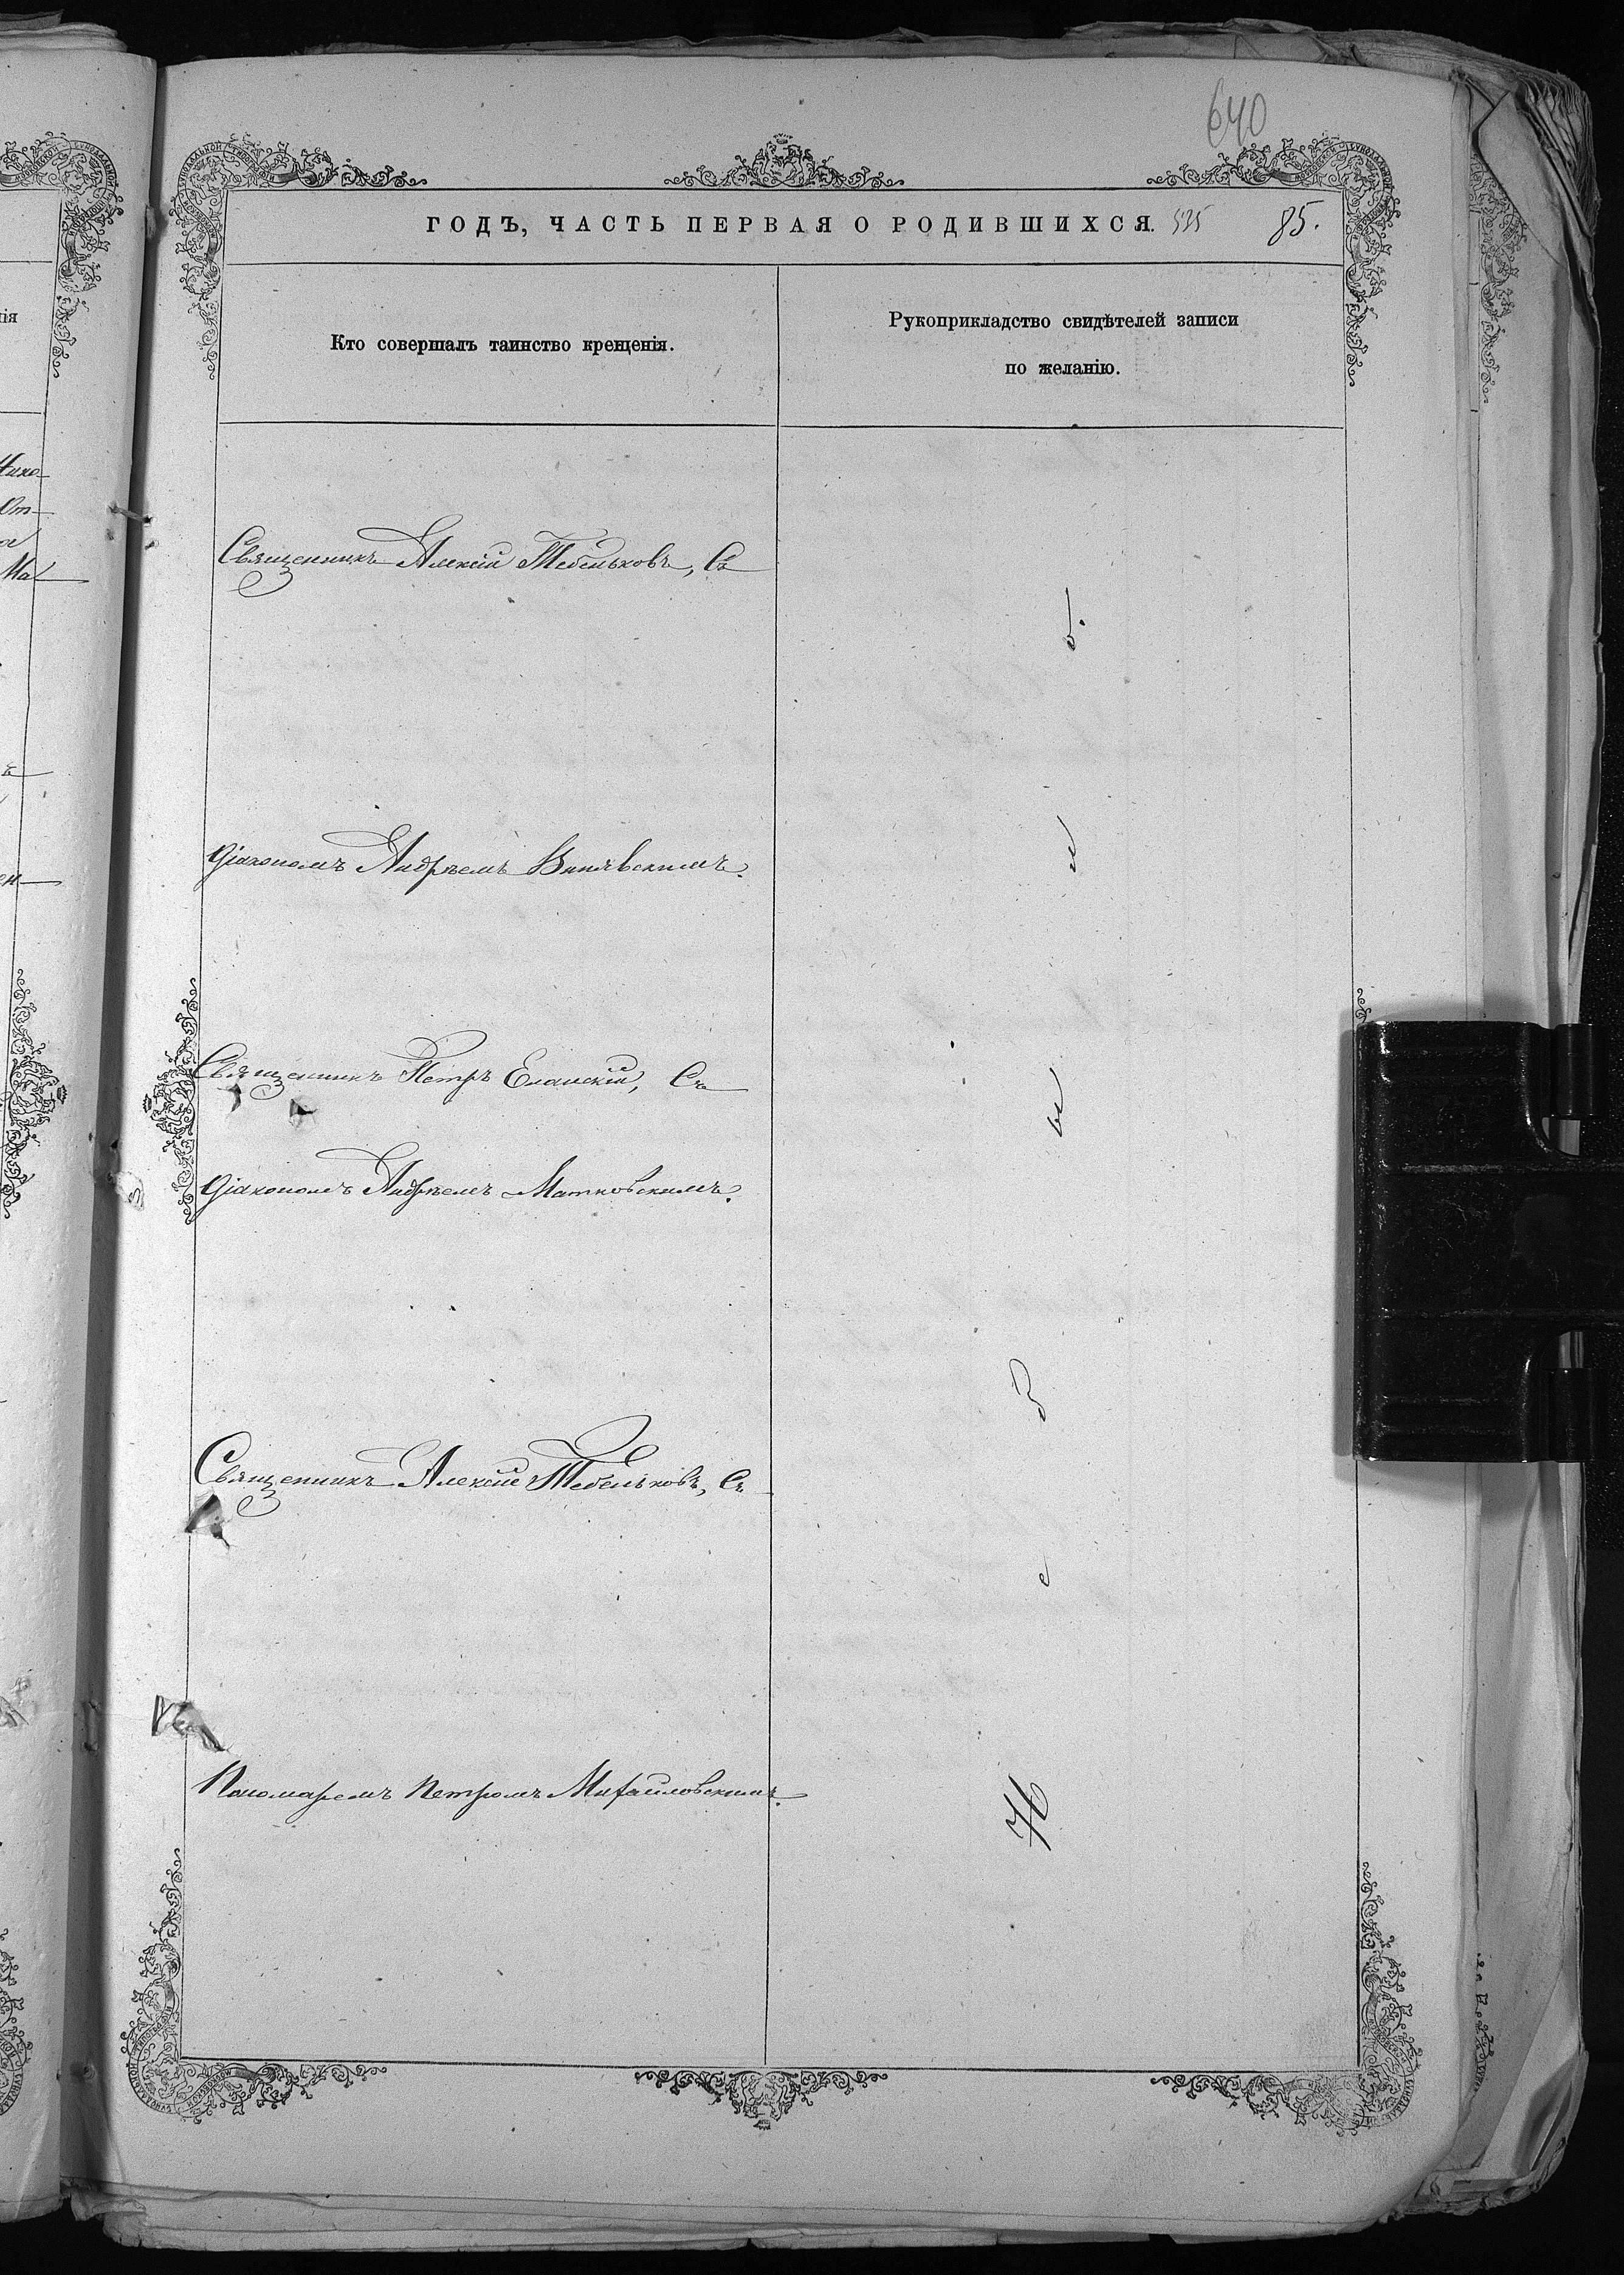 640
ГОДЪ, ЧАСТЬ ПЕРВАЯ О РОДИВШИХСЯ. 525 85.
Кто совершалъ таинство крещенія.
Рукоприкладство свидѣтелей записи
по желанію.
Священникъ Алексій Тебеньковъ, Съ
Діакономъ Андреемъ
Священникъ Петръ Еланскій, Съ
Діакономъ Андреемъ Матковскимъ.
Священникъ Алексій Тебеньковъ, Съ
Пономаремъ Петромъ Михайловскимъ.